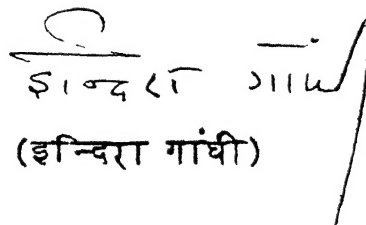 इन्दिरा गांधी
(इन्दिरा गांधी)